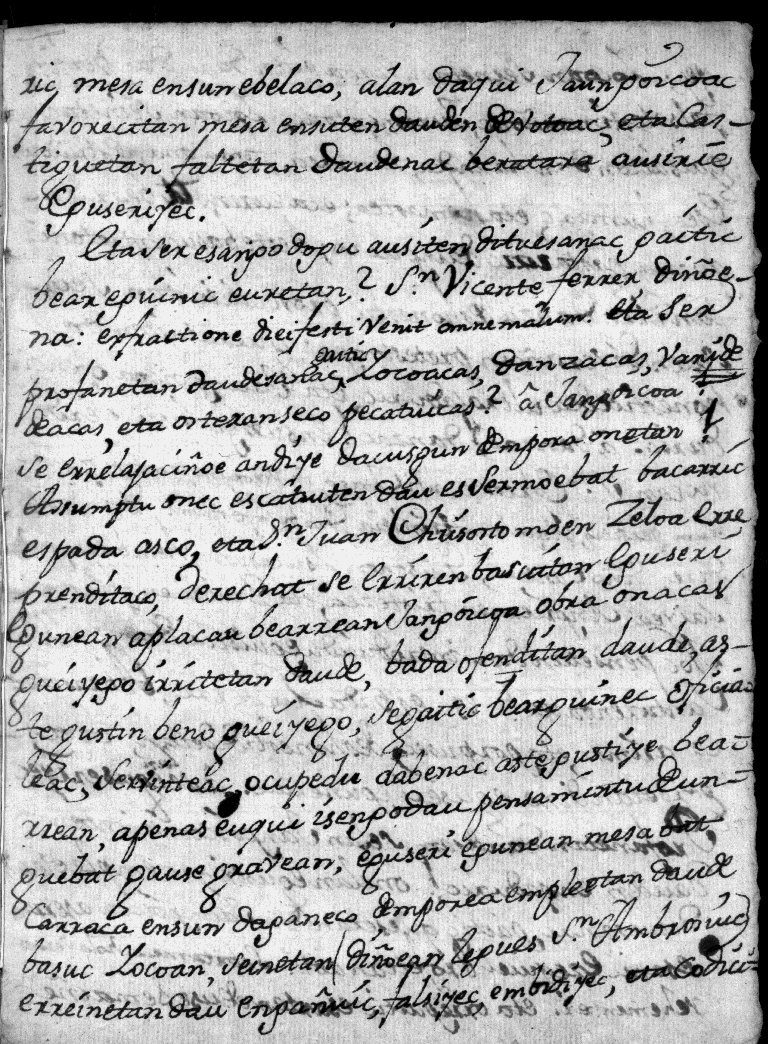 ric, mesa ensun ebelaco, alan daqui Jaunporcoac
favorecitan mesa ensuten dauden devotoac, eta Cas-
tiguetan faltetan daudenac beratara ausirie
Eguseriyec.
Eta ser esango dogu ausiten dituesanac gaitic
bear eguinic euretan? Sn. Vicente ferrer diñoe-
na: exfractione diei festi venit omne malum. Eta Ser
profanetan daudesanac gaitic, Locoacas, danzacas, Vanide
deacas, eta orteranseco pecatuacas? â Jangoicoa!
se errelajaciñoe andiye dacusgun dempora onetan!
Assumptu onec escatuten dau es Sermoe bat bacarric
espada asco, eta Sn. Juan Chrisostomoen Zeloa Erre
prenditaco, derechat se Erriren batzuitan Eguseri
Egunean aplacau bearrean Jangoicoa obra onacas
gueiyego irritetan daude, bada ofenditan daude, as-
te gustin beno gueiyego, segaitic bearguinec oficia-
leac, Serbinteac, ocupedu dabenac aste gustiye bea-
rrean, apenas euqui isengodau pensamentu deun-
guebat gause gravean, eguseri egunean mesa bat
Carraca ensun daganeco demporea empletan daude
basuc Locoan, seinetan (diñoean legues Sn. Ambrosiuc)
erreinetan dau engañuic, falsiyec, embidiyec, eta Codici-